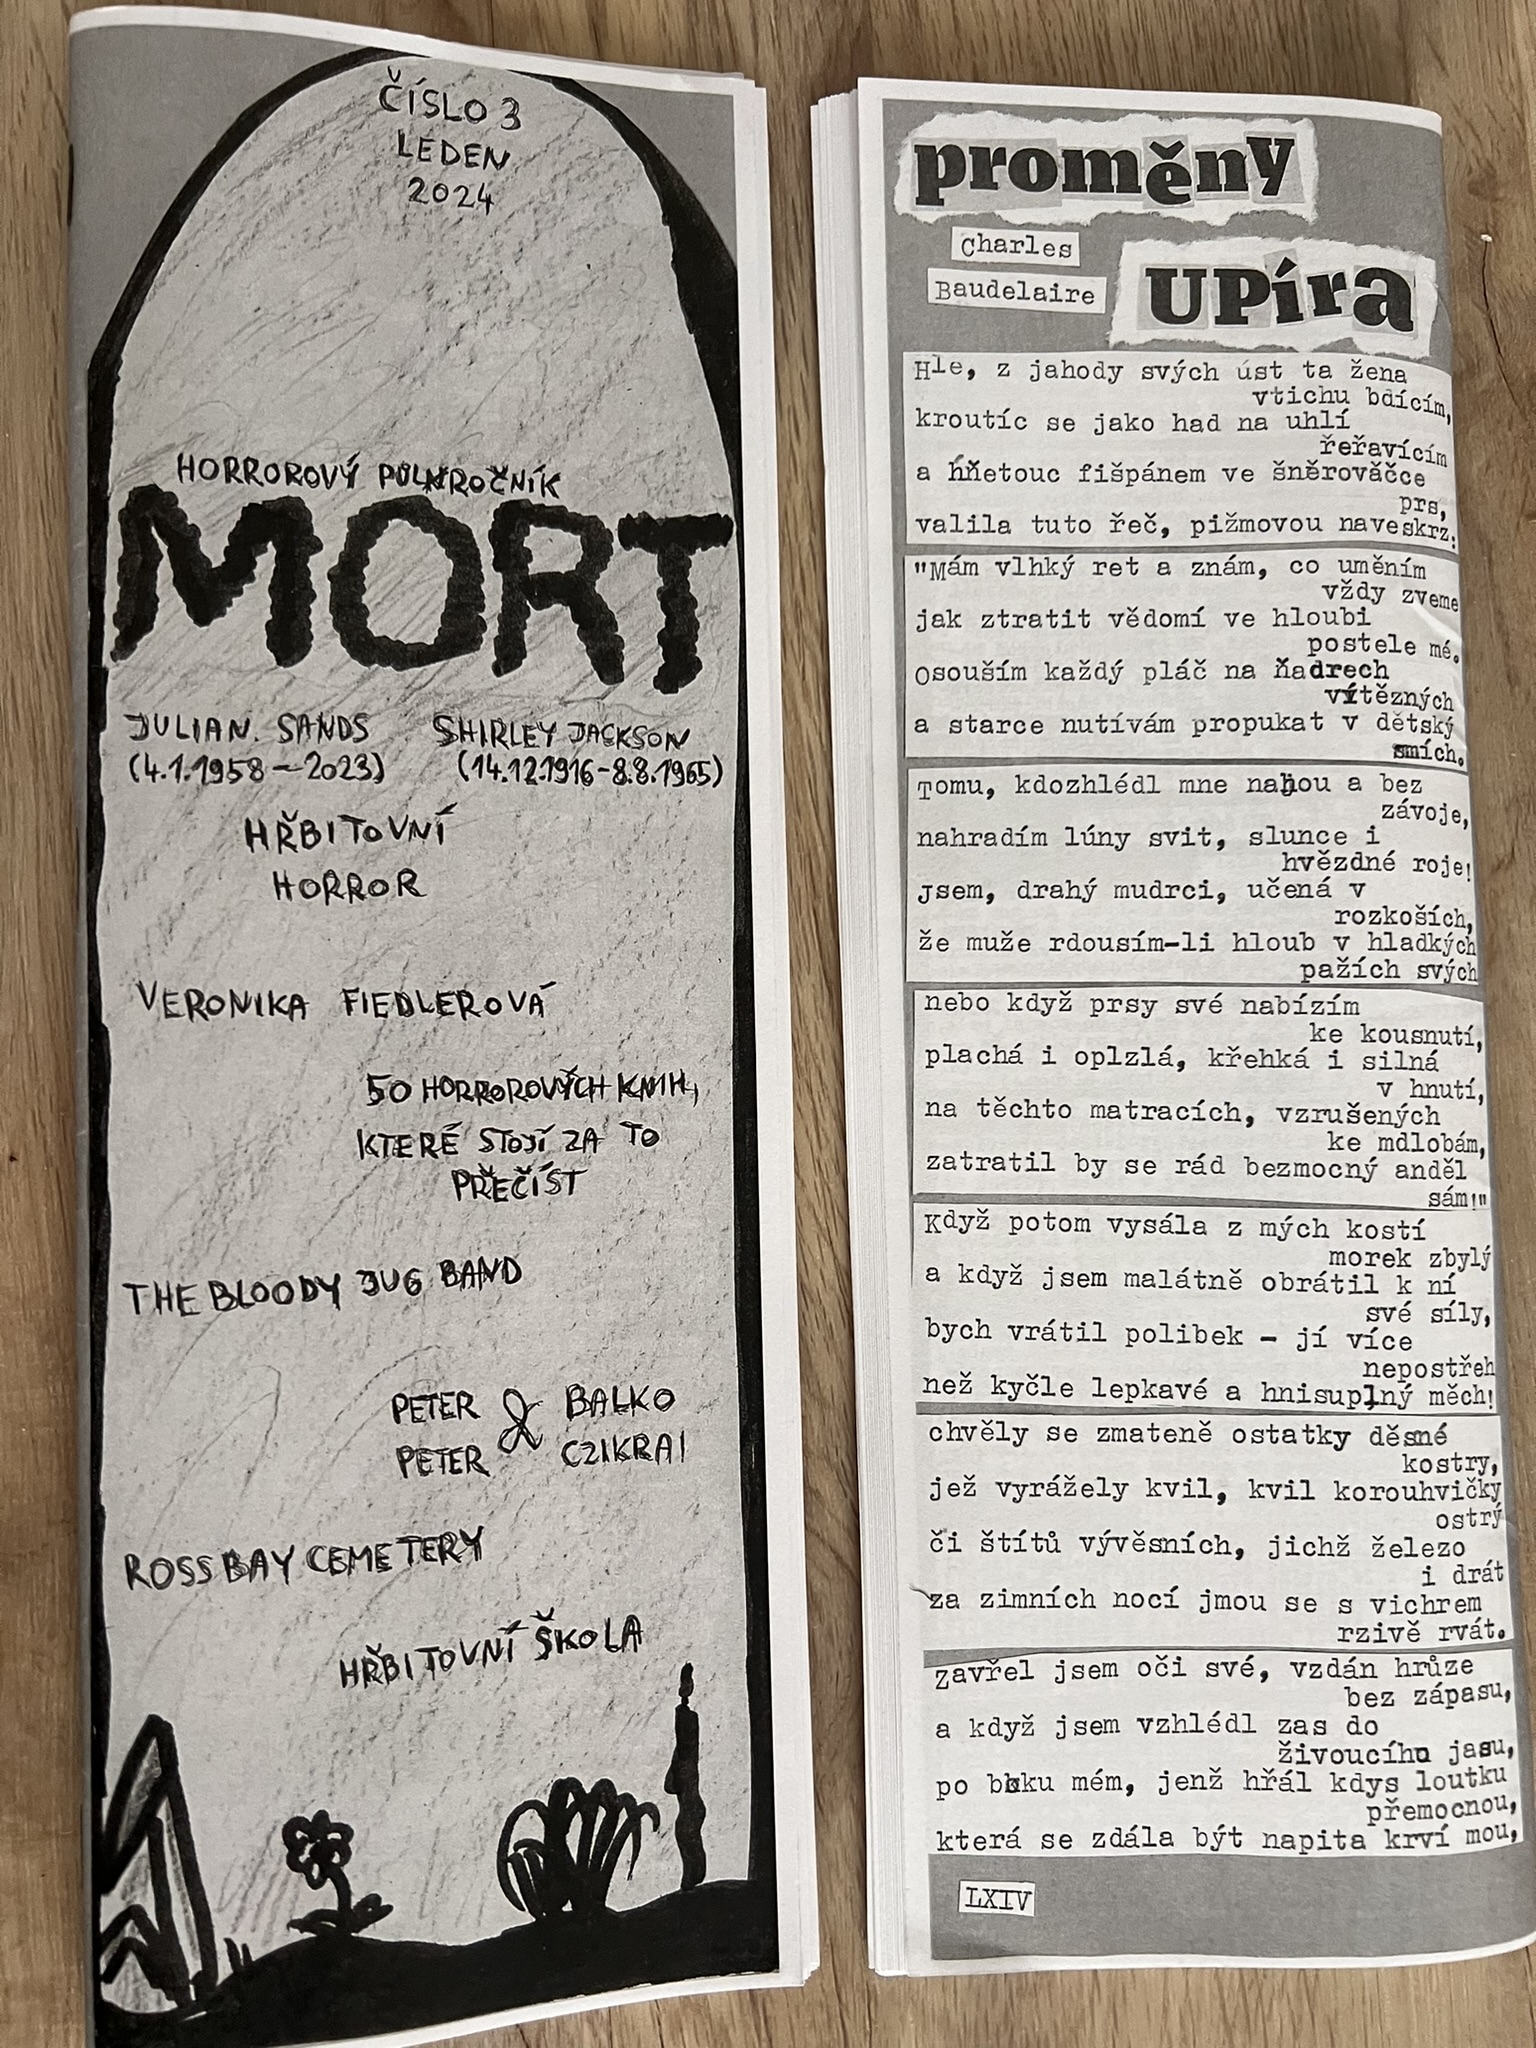 ČÍSLO 3
LEDEN
2024
HORROROVÝ PULKROČNÍK
MORT
JULIAN. SANDS
(4.1.1958 – 2023)
SHIRLEY JACKSON
(14.12.1916-8.8.1965)
HŘBITOVNÍ
HORROR
VERONIKA FIEDLEROVÁ
50 HORROROVÝCH KNIH,
KTERÉ STOJÍ ZA TO
PŘEČÍST
THE BLOODY JUG BAND
PETER & BALKO
PETER CZIKRAI
ROSS BAY CEMETERY
HŘBITOVNÍ ŠKOLA
proměny
Charles
Baudelaire
UPíra
Hle, z jahody svých úst ta žena
vtichu bdícím,
kroutíc se jako had na uhlí
řeřavícím
a hňetouc fišpánem ve šněrovăčce
prs,
valila tuto řeč, pižmovou naveskrz:
"Mám vlhký ret a znám, co uměním
vždy zveme
jak ztratit vědomí ve hloubi
postele mé.
Osouším každý pláč na ňadrech
vítězných
a starce nutívám propukat v dětský
smích.
Tomu, kdozhlédl mne nahou a bez
závoje,
nahradím lúny svit, slunce i
hvězdné roje!
Jsem, drahý mudrci, učená v
rozkoších,
že muže rdousím-li hloub v hladkých
pažích svých
nebo když prsy své nabízím
ke kousnutí,
plachá i oplzlá, křehká i silná
v hnutí,
na těchto matracích, vzrušených
ke mdlobám,
zatratil by se rád bezmocný anděl
sám!"
Když potom vysála z mých kostí
morek zbylý
a když jsem malátně obrátil k ní
své síly,
bych vrátil polibek - jí více
nepostřeh
než kyčle lepkavé a hnisuplný měch!
chvěly se zmateně ostatky děsné
kostry,
jež vyrážely kvil, kvil korouhvičky
ostrý
či štítů vývěsních, jichž železo
i drát
za zimních nocí jmou se s vichrem
rzivě rvát.
Zavřel jsem oči své, vzdán hrůze
bez zápasu,
a když jsem vzhlédl zas do
živoucího jasu,
po boku mém, jenž hřál kdys loutku
přemocnou,
která se zdála být napita krví mou,
LXIV